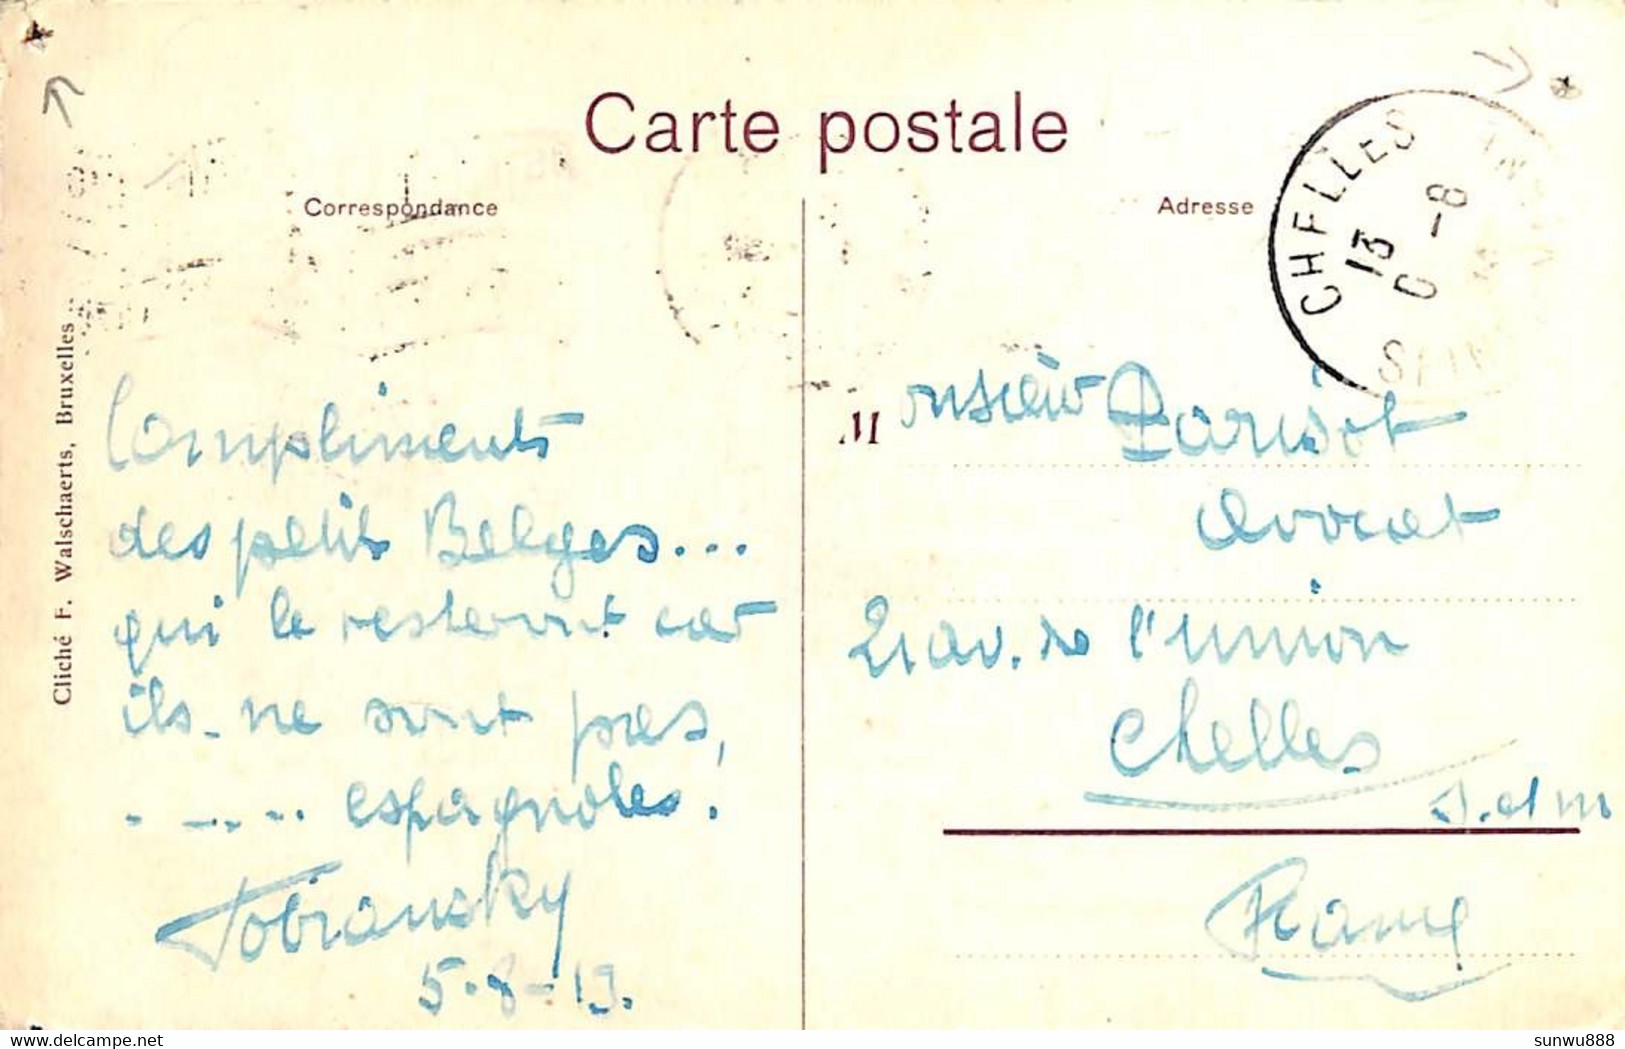 Carte postale
Correspondance
Adresse
CHELLES
13
-8
Cliché F. Walschaerts, Bruxelles
Compliments
des petits Belges...
qui le resteront car
ils ne sont pas,
..... espagnoles!
Tobiansky
5-8-13.
Monsieur Parisot
avocat
21 av. de l'union
Chelles
S. et M
France
delcampe.net
sunwu888